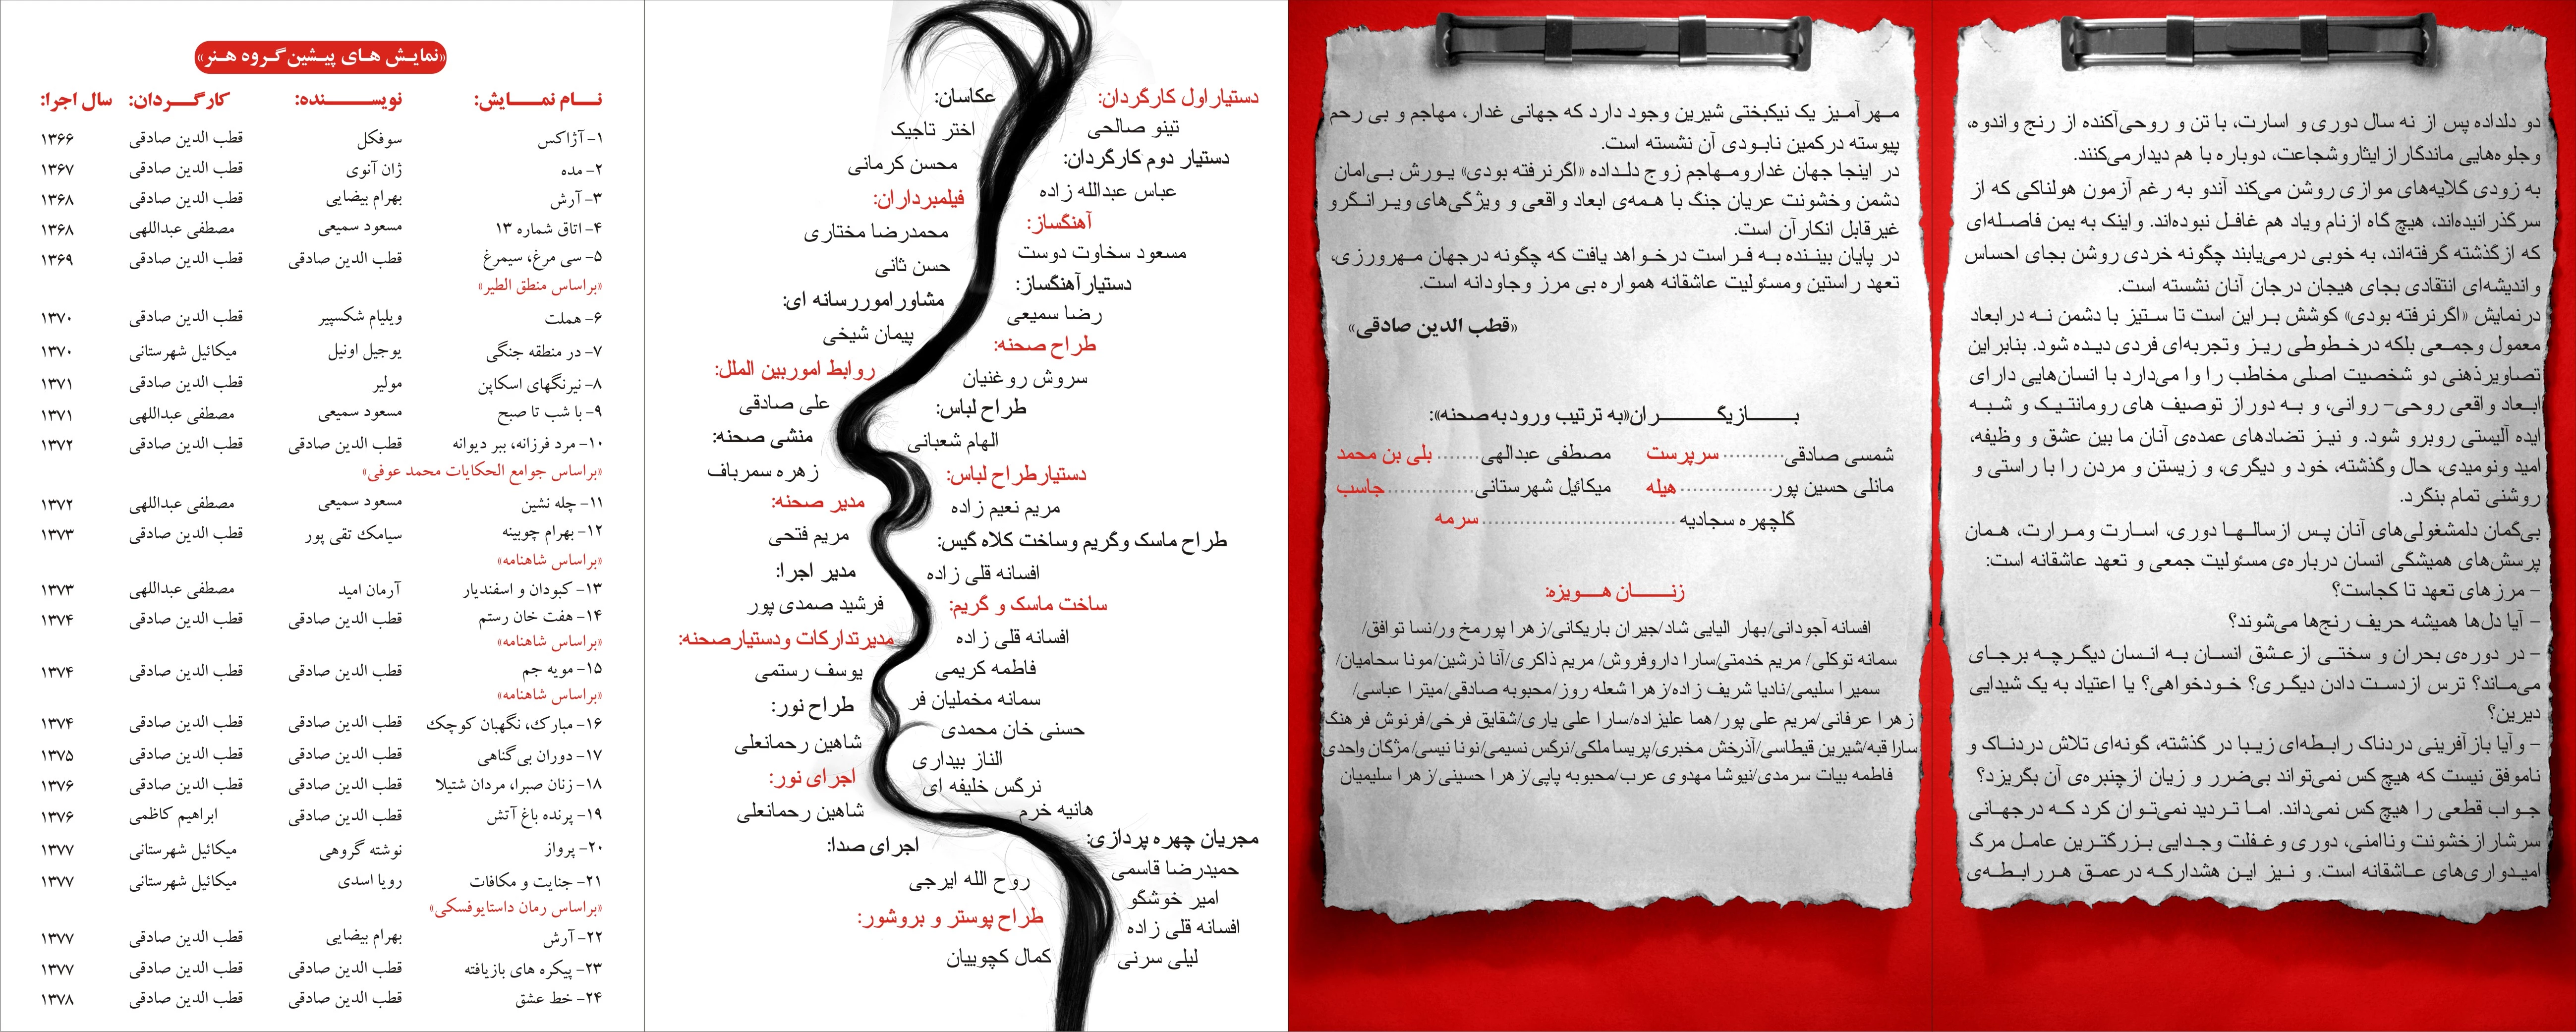 دو دلداده پس از نه سال دوری و اسارت، با تن و روحی‌آکنده از رنج و اندوه،
وجلوه‌هایی ماندگار از ایثار وشجاعت، دوباره با هم دیدار می‌کنند.
به زودی گلایه‌های موازی روشن می‌کند آندو به رغم آزمون هولناکی که از
سرگذرانیده‌اند، هیچ گاه از نام ویاد هم غافل نبوده‌اند. واینک به یمن فاصله‌ای
که ازگذشته گرفته‌اند، به خوبی درمی‌یابند چگونه خردی روشن بجای احساس
واندیشه‌ای انتقادی بجای هیجان درجان آنان نشسته است.
درنمایش «اگرنرفته بودی» کوشش براین است تا ستیز با دشمن نه درابعاد
معمول وجمعی بلکه درخطوطی ریز وتجربه‌ای فردی دیده شود. بنابراین
تصاویرذهنی دو شخصیت اصلی مخاطب را وا می‌دارد با انسان‌هایی دارای
ابعاد واقعی روحی- روانی، و به دور از توصیف های رومانتیک و شبه
ایده آلیستی روبرو شود. و نیز تضادهای عمده‌ی آنان ما بین عشق و وظیفه،
امید ونومیدی، حال وگذشته، خود و دیگری، و زیستن و مردن را با راستی و
روشنی تمام بنگرد.
بی‌گمان دلمشغولی‌های آنان پس ازسالها دوری، اسارت ومرارت، همان
پرسش‌های همیشگی انسان درباره‌ی مسئولیت جمعی و تعهد عاشقانه است:
- مرزهای تعهد تا کجاست؟
- آیا دل‌ها همیشه حریف رنج‌ها می‌شوند؟
- در دوره‌ی بحران و سختی ازعشق انسان به انسان دیگرچه برجای
می‌ماند؟ ترس ازدست دادن دیگری؟ خودخواهی؟ یا اعتیاد به یک شیدایی
دیرین؟
- وآیا بازآفرینی دردناک رابطه‌ای زیبا در گذشته، گونه‌ای تلاش دردناک و
ناموفق نیست که هیچ کس نمی‌تواند بی‌ضرر و زیان ازچنبره‌ی آن بگریزد؟
جواب قطعی را هیچ کس نمی‌داند. اما تردید نمی‌توان کرد که درجهانی
سرشارازخشونت وناامنی، دوری وغفلت وجدایی بزرگترین عامل مرگ
امیدواری‌های عاشقانه است. و نیز این هشدارکه درعمق هررابطه‌ی
مهرآمیز یک نیکبختی شیرین وجود دارد که جهانی غدار، مهاجم و بی رحم
پیوسته درکمین نابودی آن نشسته است.
در اینجا جهان غدارومهاجم زوج دلداده «اگرنرفته بودی» یورش بی‌امان
دشمن وخشونت عریان جنگ با همه‌ی ابعاد واقعی و ویژگی‌های ویرانگرو
غیرقابل انکارآن است.
در پایان بیننده به فراست درخواهد یافت که چگونه درجهان مهرورزی،
تعهد راستین ومسئولیت عاشقانه همواره بی مرز وجاودانه است.
«قطب الدین صادقی»
بازیگران«به ترتیب ورود به صحنه»:
شمسی صادقی..........سرپرست مصطفی عبدالهی.......بلی بن محمد
مانلی حسین پور..............هیله میکائیل شهرستانی..............جاسب
گلچهره سجادیه................................سرمه
زنان هویزه:
افسانه آجودانی/بهار الیایی شاد/جیران باریکانی/زهرا پورمخ ور/نسا توافق/
سمانه توکلی/ مریم خدمتی/سارا داروفروش/ مریم ذاکری/آنا ذرشین/مونا سحامیان/
سمیرا سلیمی/نادیا شریف زاده/زهرا شعله روز/محبوبه صادقی/میترا عباسی/
زهرا عرفانی/مریم علی پور/هما علیزاده/سارا علی یاری/شقایق فرخی/فرنوش فرهنگ
سارا قبه/شیرین قیطاسی/آذرخش مخبری/پریسا ملکی/نرگس نسیمی/نونا نیسی/مژگان واحدی
فاطمه بیات سرمدی/نیوشا مهدوی عرب/محبوبه پاپی/زهرا حسینی/زهرا سلیمیان
دستیاراول کارگردان:
تینو صالحی
دستیار دوم کارگردان:
عباس عبدالله زاده
آهنگساز:
مسعود سخاوت دوست
دستیارآهنگساز:
رضا سمیعی
طراح صحنه:
سروش روغنیان
طراح لباس:
الهام شعبانی
دستیارطراح لباس:
مریم نعیم زاده
طراح ماسک وگریم وساخت کلاه گیس:
افسانه قلی زاده
ساخت ماسک و گریم:
افسانه قلی زاده
فاطمه کریمی
سمانه مخملیان فر
حسنی خان محمدی
الناز بیداری
نرگس خلیفه ای
هانیه خرم
مجریان چهره پردازی:
حمیدرضا قاسمی
امیر خوشگو
افسانه قلی زاده
لیلی سرنی
عکاسان:
اختر تاجیک
محسن کرمانی
فیلمبرداران:
محمدرضا مختاری
حسن ثانی
مشاوراموررسانه ای:
پیمان شیخی
روابط اموربین الملل:
علی صادقی
منشی صحنه:
زهره سمرباف
مدیر صحنه:
مریم فتحی
مدیر اجرا:
فرشید صمدی پور
مدیرتدارکات ودستیارصحنه:
یوسف رستمی
طراح نور:
شاهین رحمانعلی
اجرای نور:
شاهین رحمانعلی
اجرای صدا:
روح الله ایرجی
طراح پوستر و بروشور:
کمال کچوییان
«نمایش های پیشین گروه هنر»
نام نمایش: نویسنده: کارگردان: سال اجرا:
۱- آژاکس سوفکل قطب الدین صادقی ۱۳۶۶
۲- مده ژان آنوی قطب الدین صادقی ۱۳۶۷
۳- آرش بهرام بیضایی قطب الدین صادقی ۱۳۶۸
۴- اتاق شماره ۱۳ مسعود سمیعی مصطفی عبداللهی ۱۳۶۸
۵- سی مرغ، سیمرغ قطب الدین صادقی قطب الدین صادقی ۱۳۶۹
«براساس منطق الطیر»
۶- هملت ویلیام شکسپیر قطب الدین صادقی ۱۳۷۰
۷- در منطقه جنگی یوجیل اونیل میکائیل شهرستانی ۱۳۷۰
۸- نیرنگهای اسکاپن مولیر قطب الدین صادقی ۱۳۷۱
۹- با شب تا صبح مسعود سمیعی مصطفی عبداللهی ۱۳۷۱
۱۰- مرد فرزانه، ببر دیوانه قطب الدین صادقی قطب الدین صادقی ۱۳۷۲
«براساس جوامع الحکایات محمد عوفی»
۱۱- چله نشین مسعود سمیعی مصطفی عبداللهی ۱۳۷۲
۱۲- بهرام چوبینه سیامک تقی پور قطب الدین صادقی ۱۳۷۳
«براساس شاهنامه»
۱۳- کبودان و اسفندیار آرمان امید مصطفی عبداللهی ۱۳۷۳
۱۴- هفت خان رستم قطب الدین صادقی قطب الدین صادقی ۱۳۷۴
«براساس شاهنامه»
۱۵- مویه جم قطب الدین صادقی قطب الدین صادقی ۱۳۷۴
«براساس شاهنامه»
۱۶- مبارک، نگهبان کوچک قطب الدین صادقی قطب الدین صادقی ۱۳۷۴
۱۷- دوران بی گناهی قطب الدین صادقی قطب الدین صادقی ۱۳۷۵
۱۸- زنان صبرا، مردان شتیلا قطب الدین صادقی قطب الدین صادقی ۱۳۷۶
۱۹- پرنده باغ آتش قطب الدین صادقی ابراهیم کاظمی ۱۳۷۶
۲۰- پرواز نوشته گروهی میکائیل شهرستانی ۱۳۷۷
۲۱- جنایت و مکافات رویا اسدی میکائیل شهرستانی ۱۳۷۷
«براساس رمان داستایوفسکی»
۲۲- آرش بهرام بیضایی قطب الدین صادقی ۱۳۷۷
۲۳- پیکره های بازیافته قطب الدین صادقی قطب الدین صادقی ۱۳۷۷
۲۴- خط عشق قطب الدین صادقی قطب الدین صادقی ۱۳۷۸